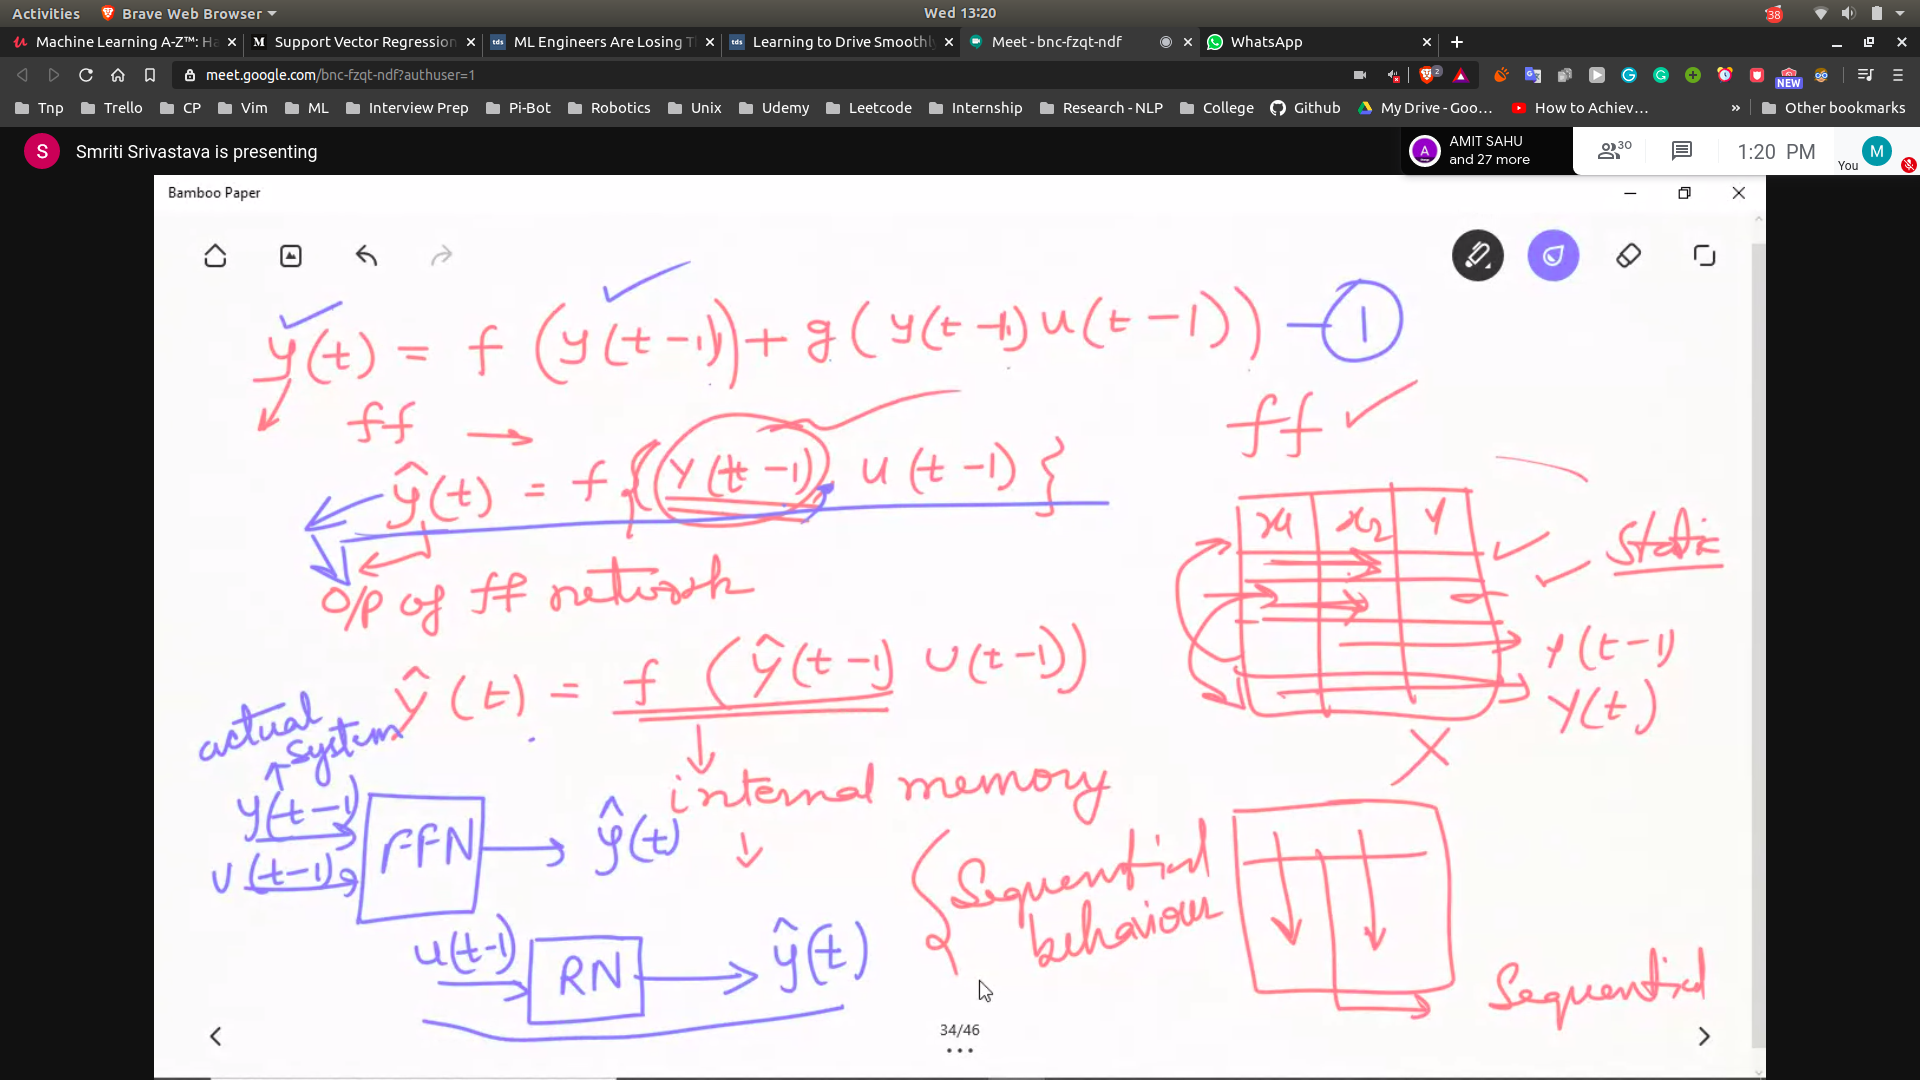 Activities Brave Web Browser Wed 13:20 38
Machine Learning A-Z™: Ha Support Vector Regression ML Engineers Are Losing T Learning to Drive Smoothly Meet - bnc-fzqt-ndf WhatsApp
meet.google.com/bnc-fzqt-ndf?authuser=1 2 NEW
Tnp Trello CP Vim ML Interview Prep Pi-Bot Robotics Unix Udemy Leetcode Internship Research - NLP College Github My Drive - Goo... How to Achiev... » Other bookmarks
S Smriti Srivastava is presenting
A AMIT SAHU
and 27 more
30 1:20 PM You M
Bamboo Paper
y(t) = f (y(t-1)) + g(y(t-1) u(t-1)) - 1
ff →
ff ✓
ŷ(t) = f {y(t-1), u(t-1)}
x1 x2 Y
Static
O/P of ff network
Y(t-1)
ŷ(t) = f (ŷ(t-1) u(t-1))
Y(t)
X
actual system
internal memory
y(t-1)
u(t-1)
FFN
ŷ(t)
Sequential
behaviour
u(t-1)
RN
ŷ(t)
Sequential
34/46